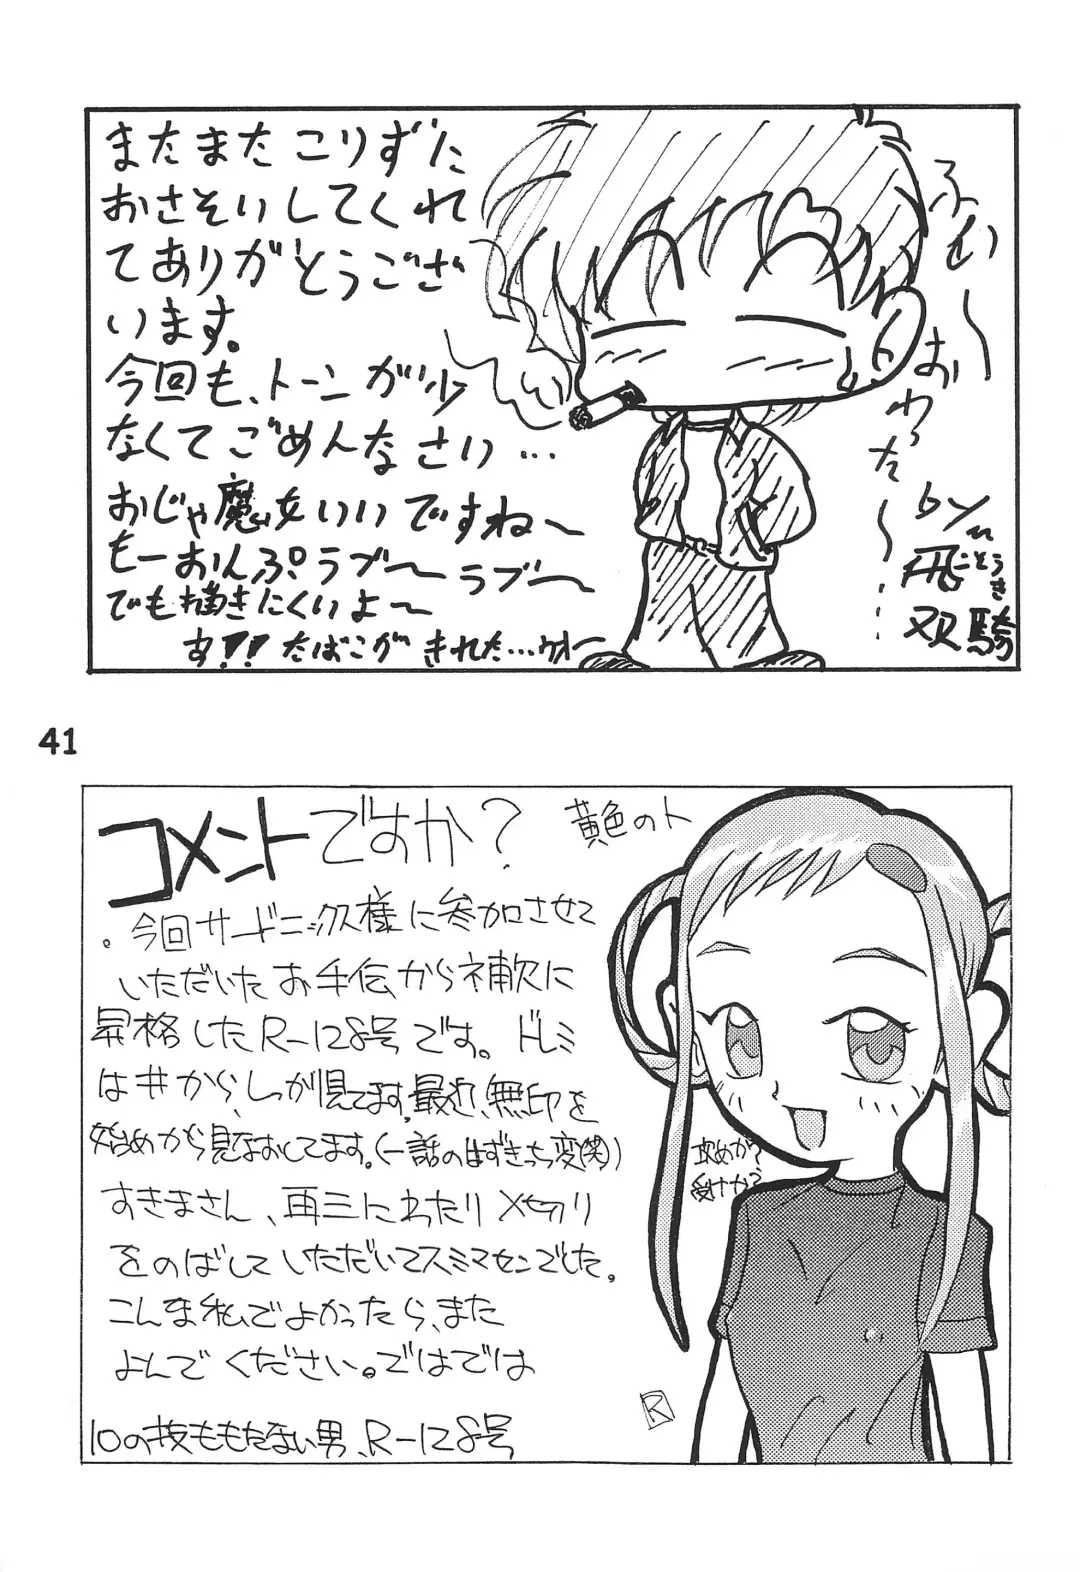 またまたこりずた
おさそいしてくれ
てありがとうござ
います。
今回も、トーンが少
なくてごめんなさい…
おじゃ魔女いいですね〜
もーおんぷラブ〜ラブ〜
でも描きにくいよ〜
す!!たばこがきれた…ウオー
ふい〜
おわった〜……
by
飛こそうき
双騎
41
コメントですか?
黄色の卜
。今回サードニックス様に参加させて
いただいたお手伝から補欠に
昇格したR-128号です。ドレミ
は#から、しっか見てます。最近、無印を
始めから見なおしてます。(一話のはずきっち変(笑))
すきまさん、再三にわたり〆切り
をのばしていただいてスミマセンでした。
こんな私でよかったら、また
よんでください。ではでは
10の技ももたない男、R-128号
攻めか?
受けか?
R